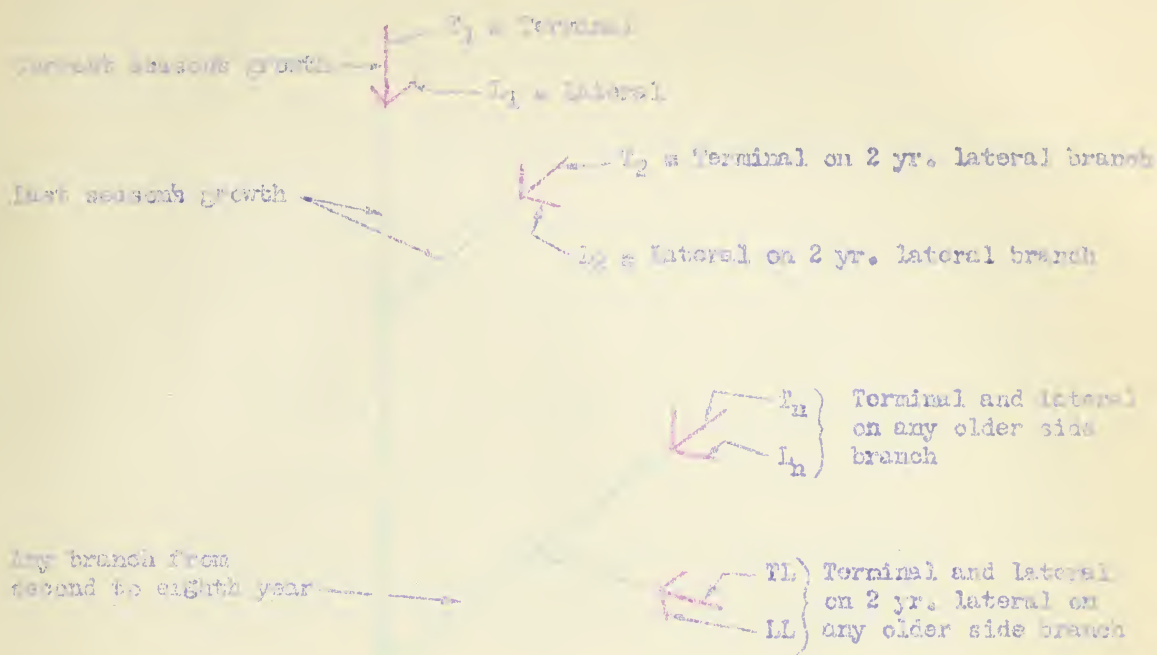 T₁ = Terminal
Current season's growth
L₁ = Lateral
T₂ = Terminal on 2 yr. lateral branch
Last season's growth
L₂ = Lateral on 2 yr. lateral branch
Tₙ Terminal and lateral
on any older side
Lₙ branch
Any branch from
second to eighth year
TL Terminal and lateral
on 2 yr. lateral on
LL any older side branch